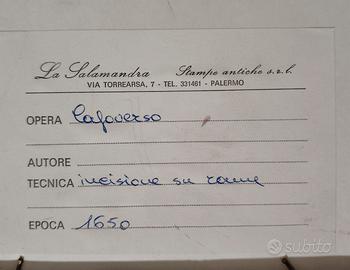 La Salamandra Stampe antiche s.r.l.
VIA TORREARSA, 7 - TEL. 331461 - PALERMO
OPERA Capoverso
AUTORE
TECNICA incisione su rame
EPOCA 1650
subito